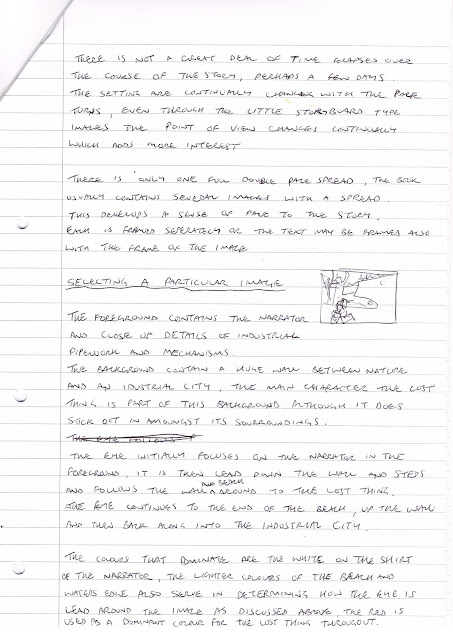 THERE IS NOT A GREAT DEAL OF TIME ELAPSES OVER
THE COURSE OF THE STORY, PERHAPS A FEW DAYS.
THE SETTING ARE CONTINUALLY CHANGING WITH THE PAGE
TURNS, EVEN THROUGH THE LITTLE STORYBOARD TYPE
IMAGES THE POINT OF VIEW CHANGES CONTINUALLY
WHICH ADDS MORE INTEREST
THERE IS ONLY ONE FULL DOUBLE PAGE SPREAD, THE BOOK
USUALLY CONTAINS SEVERAL IMAGES WITH A SPREAD.
THIS DEVELOPS A SENSE OF PACE TO THE STORY.
EACH IS FRAMED SEPERATELY OR THE TEXT MAY BE FRAMED ALSO
WITH THE FRAME OF THE IMAGE
SELECTING A PARTICULAR IMAGE
THE FOREGROUND CONTAINS THE NARRATOR
AND CLOSE UP DETAILS OF INDUSTRIAL
PIPEWORK AND MECHANISMS.
THE BACKGROUND CONTAIN A HUGE WALL BETWEEN NATURE
AND AN IDUSTRIAL CITY, THE MAIN CHARACTER THE LOST
THING IS PART OF THIS BACKGROUND ALTHOUGH IT DOES
STICK OUT IN AMOUNGST ITS SOURROUNDINGS.
THE EYE FOLLOWS
THE EYE INITIALLY FOCUSES ON THE NARRATOR IN THE
FOREGROUND, IT IS THEN LEAD DOWN THE WALL AND STEPS
AND FOLLOWS THE WALL AND BEACH AROUND TO THE LOST THING.
THE EYE CONTINUES TO THE END OF THE BEACH, UP THE WALL
AND THEN BACK ALONG INTO THE INDUSTRIAL CITY.
THE COLOURS THAT DOMINATE ARE THE WHITE ON THE SHIRT
OF THE NARRATOR, THE LIGHTER COLOURS OF THE BEACH AND
WATERS EDGE ALSO SERVE IN DETERMINING HOW THE EYE IS
LEAD AROUND THE IMAGE AS DISCUSSED ABOVE. THE RED IS
USED AS A DOMINANT COLOUR FOR THE LOST THING THROUGOUT.